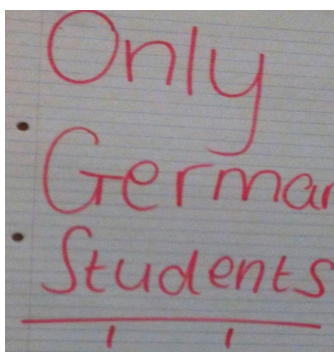 Only
German
Students